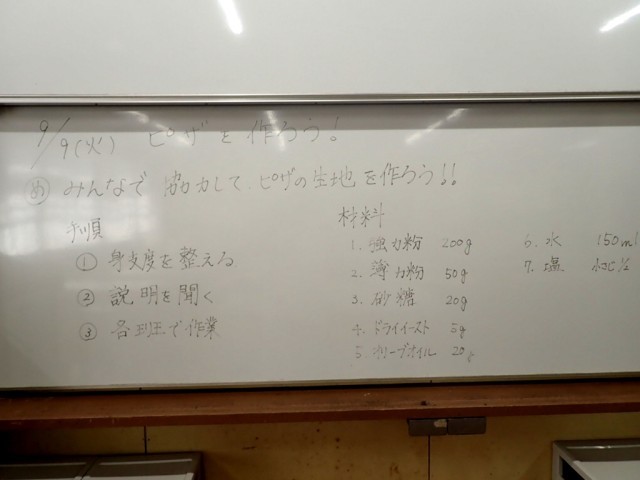 9/9(火) ピザを作ろう!
め みんなで協力して、ピザの生地を作ろう!!
手順
① 身支度を整える
② 説明を聞く
③ 各班で作業
材料
1. 強力粉 200g
2. 薄力粉 50g
3. 砂糖 20g
4. ドライイースト 5g
5. オリーブオイル 20g
6. 水 150ml
7. 塩 小さじ1/2